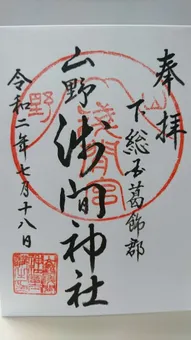 奉拝
下総国葛飾郡
山野浅間神社
令和二年七月十八日